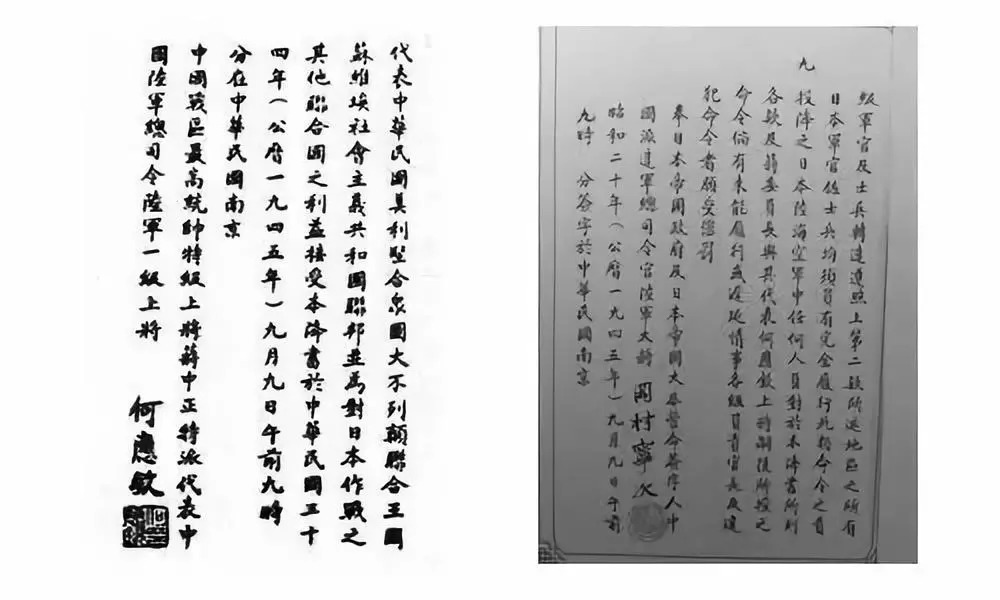 級軍官及士兵轉達遵照上第二款所述地區之所有
日本軍官佐士兵均須負有完全履行此類命令之責
九 投降之日本陸海空軍中任何人員對於本降書所列
各款及蔣委員長與其代表何應欽上將嗣後所授之
命令倘有未能履行或遲延情事各級負責官長及違
犯命令者願受懲罰
奉日本帝國政府及日本帝國大本營命簽字人中
國派遣軍總司令官陸軍大將 岡村寧次
昭和二十年（公曆一九四五年）九月九日午前
九時 分簽字於中華民國南京
代表中華民國美利堅合眾國大不列顛聯合王國
蘇維埃社會主義共和國聯邦並為對日本作戰之
其他聯合國之利益接受本降書於中華民國三十
四年（公曆一九四五年）九月九日午前九時
分在中華民國南京
中國戰區最高統帥特級上將蔣中正特派代表中
國陸軍總司令陸軍一級上將 何應欽